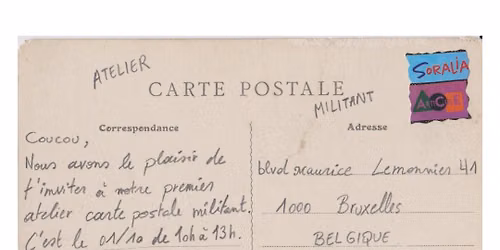 ATELIER
CARTE POSTALE
MILITANT
SORALIA
Correspondance
Adresse
Coucou,
Nous avons le plaisir de
t'inviter à notre premier
atelier carte postale militant.
C'est le 01/10 de 10h à 13h.
blvd Maurice Lemonnier 41
1000 Bruxelles
BELGIQUE